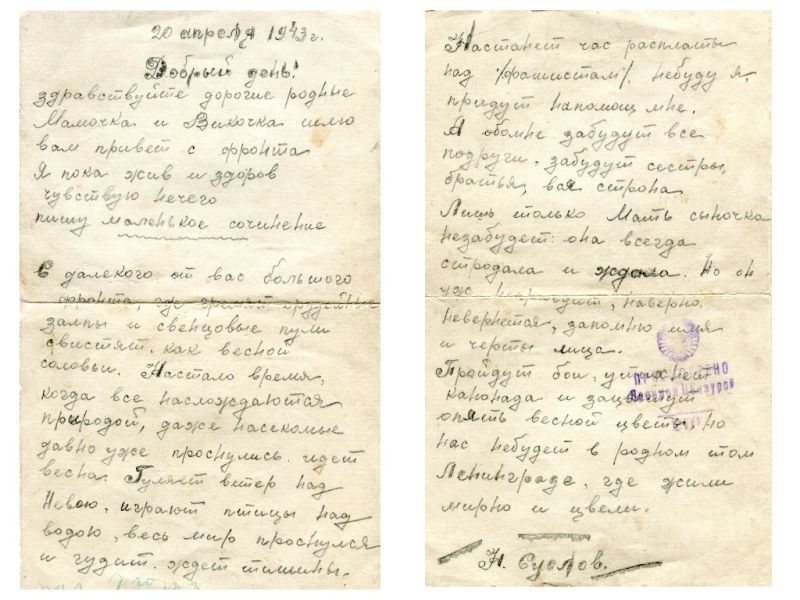 20 апреля 1943 г.
Добрый день!
здравствуйте дорогие родные
Мамочка и Викочка шлю
вам привет с фронта
Я пока жив и здоров
чувствую нечего
пишу маленькое сочинение
С далекого от вас большого
фронта, где гремят орудийные
залпы и свенцовые пули
свистят. как весной
соловьи. Настало время,
когда все наслождаются
природой, даже насекомые
давно уже проснулись. идет
весна. Гуляет ветер над
Невою, играют птицы над
водою, весь мир проснулся
и гудит. ждет тишины.
Настанет час расплаты
над /фашистам/. небуду я,
придут напомощ мне.
Я обомне забудут все
подруги. забудут сестры,
братья, вся строна
Лишь только Мать сыночка
незабудет: она всегда
стродала и ждала. Но он
уж, наверно.
невернется, запомню имя
и черты лица.
Пройдут бои, утихнет
канонада и зацветут
опять весной цветы, но
нас небудет в родном том
Ленинграде, где жили
мирно и цвели.
Н. Суслов.
ПРОСМОТРЕНО
Военной Цензурой